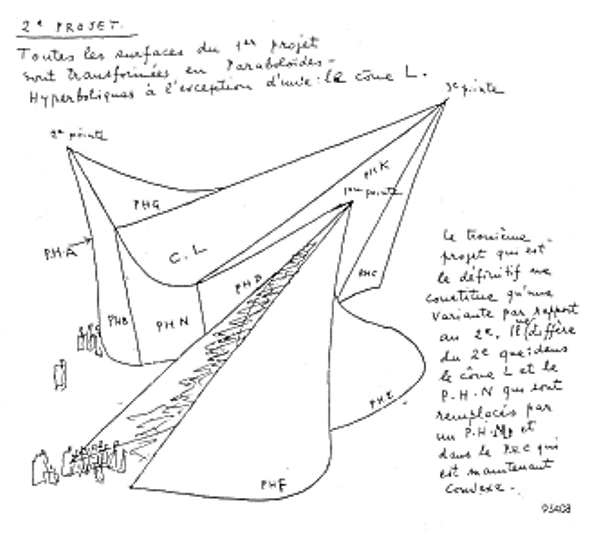 2e PROJET.
Toutes les surfaces du 1er projet
sont transformées en Paraboloïdes-
Hyperboliques à l'exception d'une: le cône L.
3e pointe
2e pointe
PHK
1ere pointe
PHG
PHA
C.L
PHD
PHC
PHB
PHN
PHE
PHF
Le troisième
projet qui est
le définitif ne
constitue qu'une
variante par rapport
au 2e. Il ne diffère
du 2e que: dans
le cône L et le
P.H.N qui sont
remplacés par
un P.H. et
dans le qui
est maintenant
convexe.